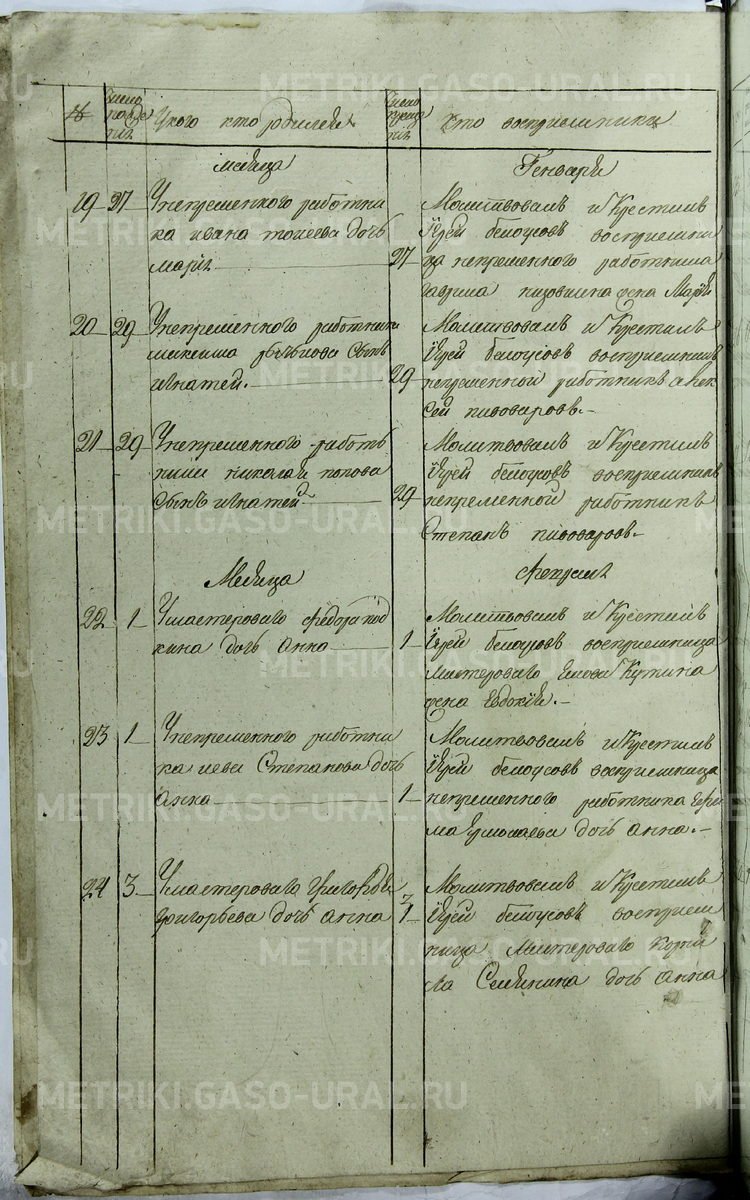 № Число рожде нiя Укого кто родился Число креще нiя Кто восприемники
месяца Генваря
19 27 Унепременного работни
ка ивана мокеева дочь
марiя
27 Молитвовалъ и Крестилъ
Iерей белоусовъ восприемни
ца непременного работника
гаврила низовкина жена Марiя
20 29 Унепременного работника
максима сынъ
игнатей.
29 Молитвовалъ и Крестилъ
Iерей белоусовъ восприемникъ
непременной работникъ алек
сей пивоваровъ.
21 29 Унепременного работъ
ника николая попова
сынъ игнатей
29 Молитвовалъ и Крестилъ
Iерей белоусовъ восприемникъ
непременной работникъ
Степанъ пивоваровъ.
Месяца февраля
22 1 Умастероваго федора код
кина дочь анна
1 Молитвовалъ и Крестилъ
Iерей белоусовъ восприемница
мастероваго Кутина
жена Евдокiя.
23 1 Унепременного работни
ка Степанова дочь
анна
1 Молитвовалъ и Крестилъ
Iерей белоусовъ восприемница
непременного работника Ефи
ма дочь анна.
24 3 Умастероваго григорья
григорьева дочь анна
3 Молитвовалъ и Крестилъ
Iерей белоусовъ восприем
ница мастероваго Корни
ла Семянина дочь анна
METRIKI.GASO-URAL.RU